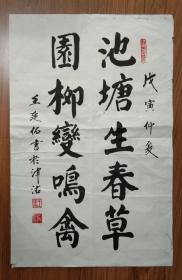 戊寅仲夏
池塘生春草
園柳變鳴禽
王延佑書於津沽